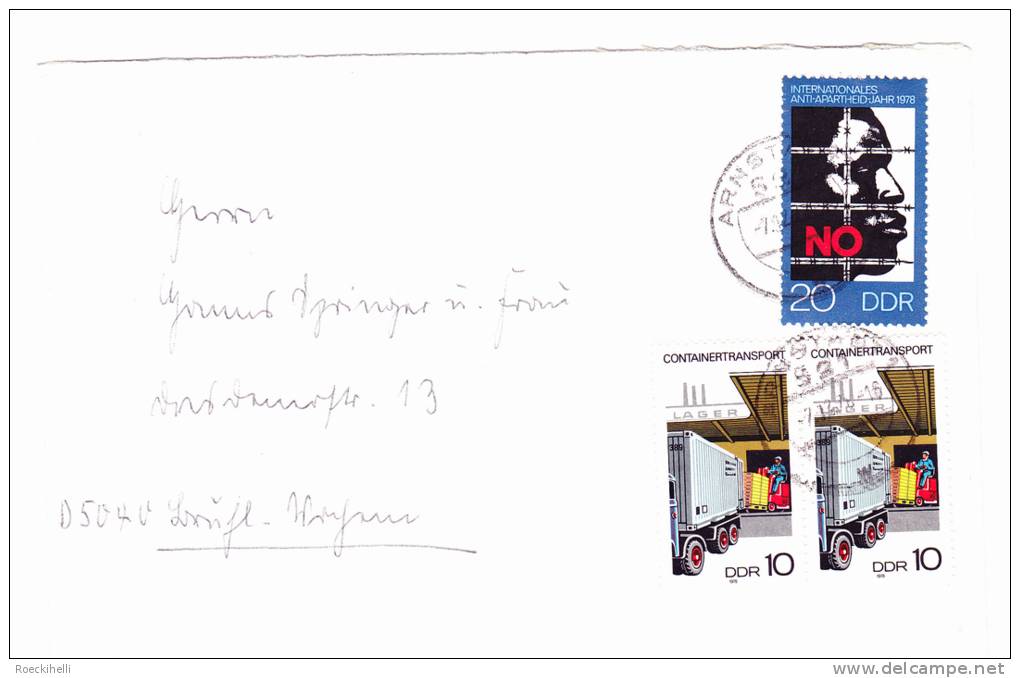 INTERNATIONALES
ANTI-APARTHEID-JAHR 1978
NO
20 DDR
ARNST
Herrn
Hanns Springer u. Frau
Dresdenerstr. 13
D5040 Brühl-Vochem
CONTAINERTRANSPORT
LAGER
DDR 10
1978
CONTAINERTRANSPORT
LAGER
DDR 10
1978
521
Roeckihelli
www.delcampe.net